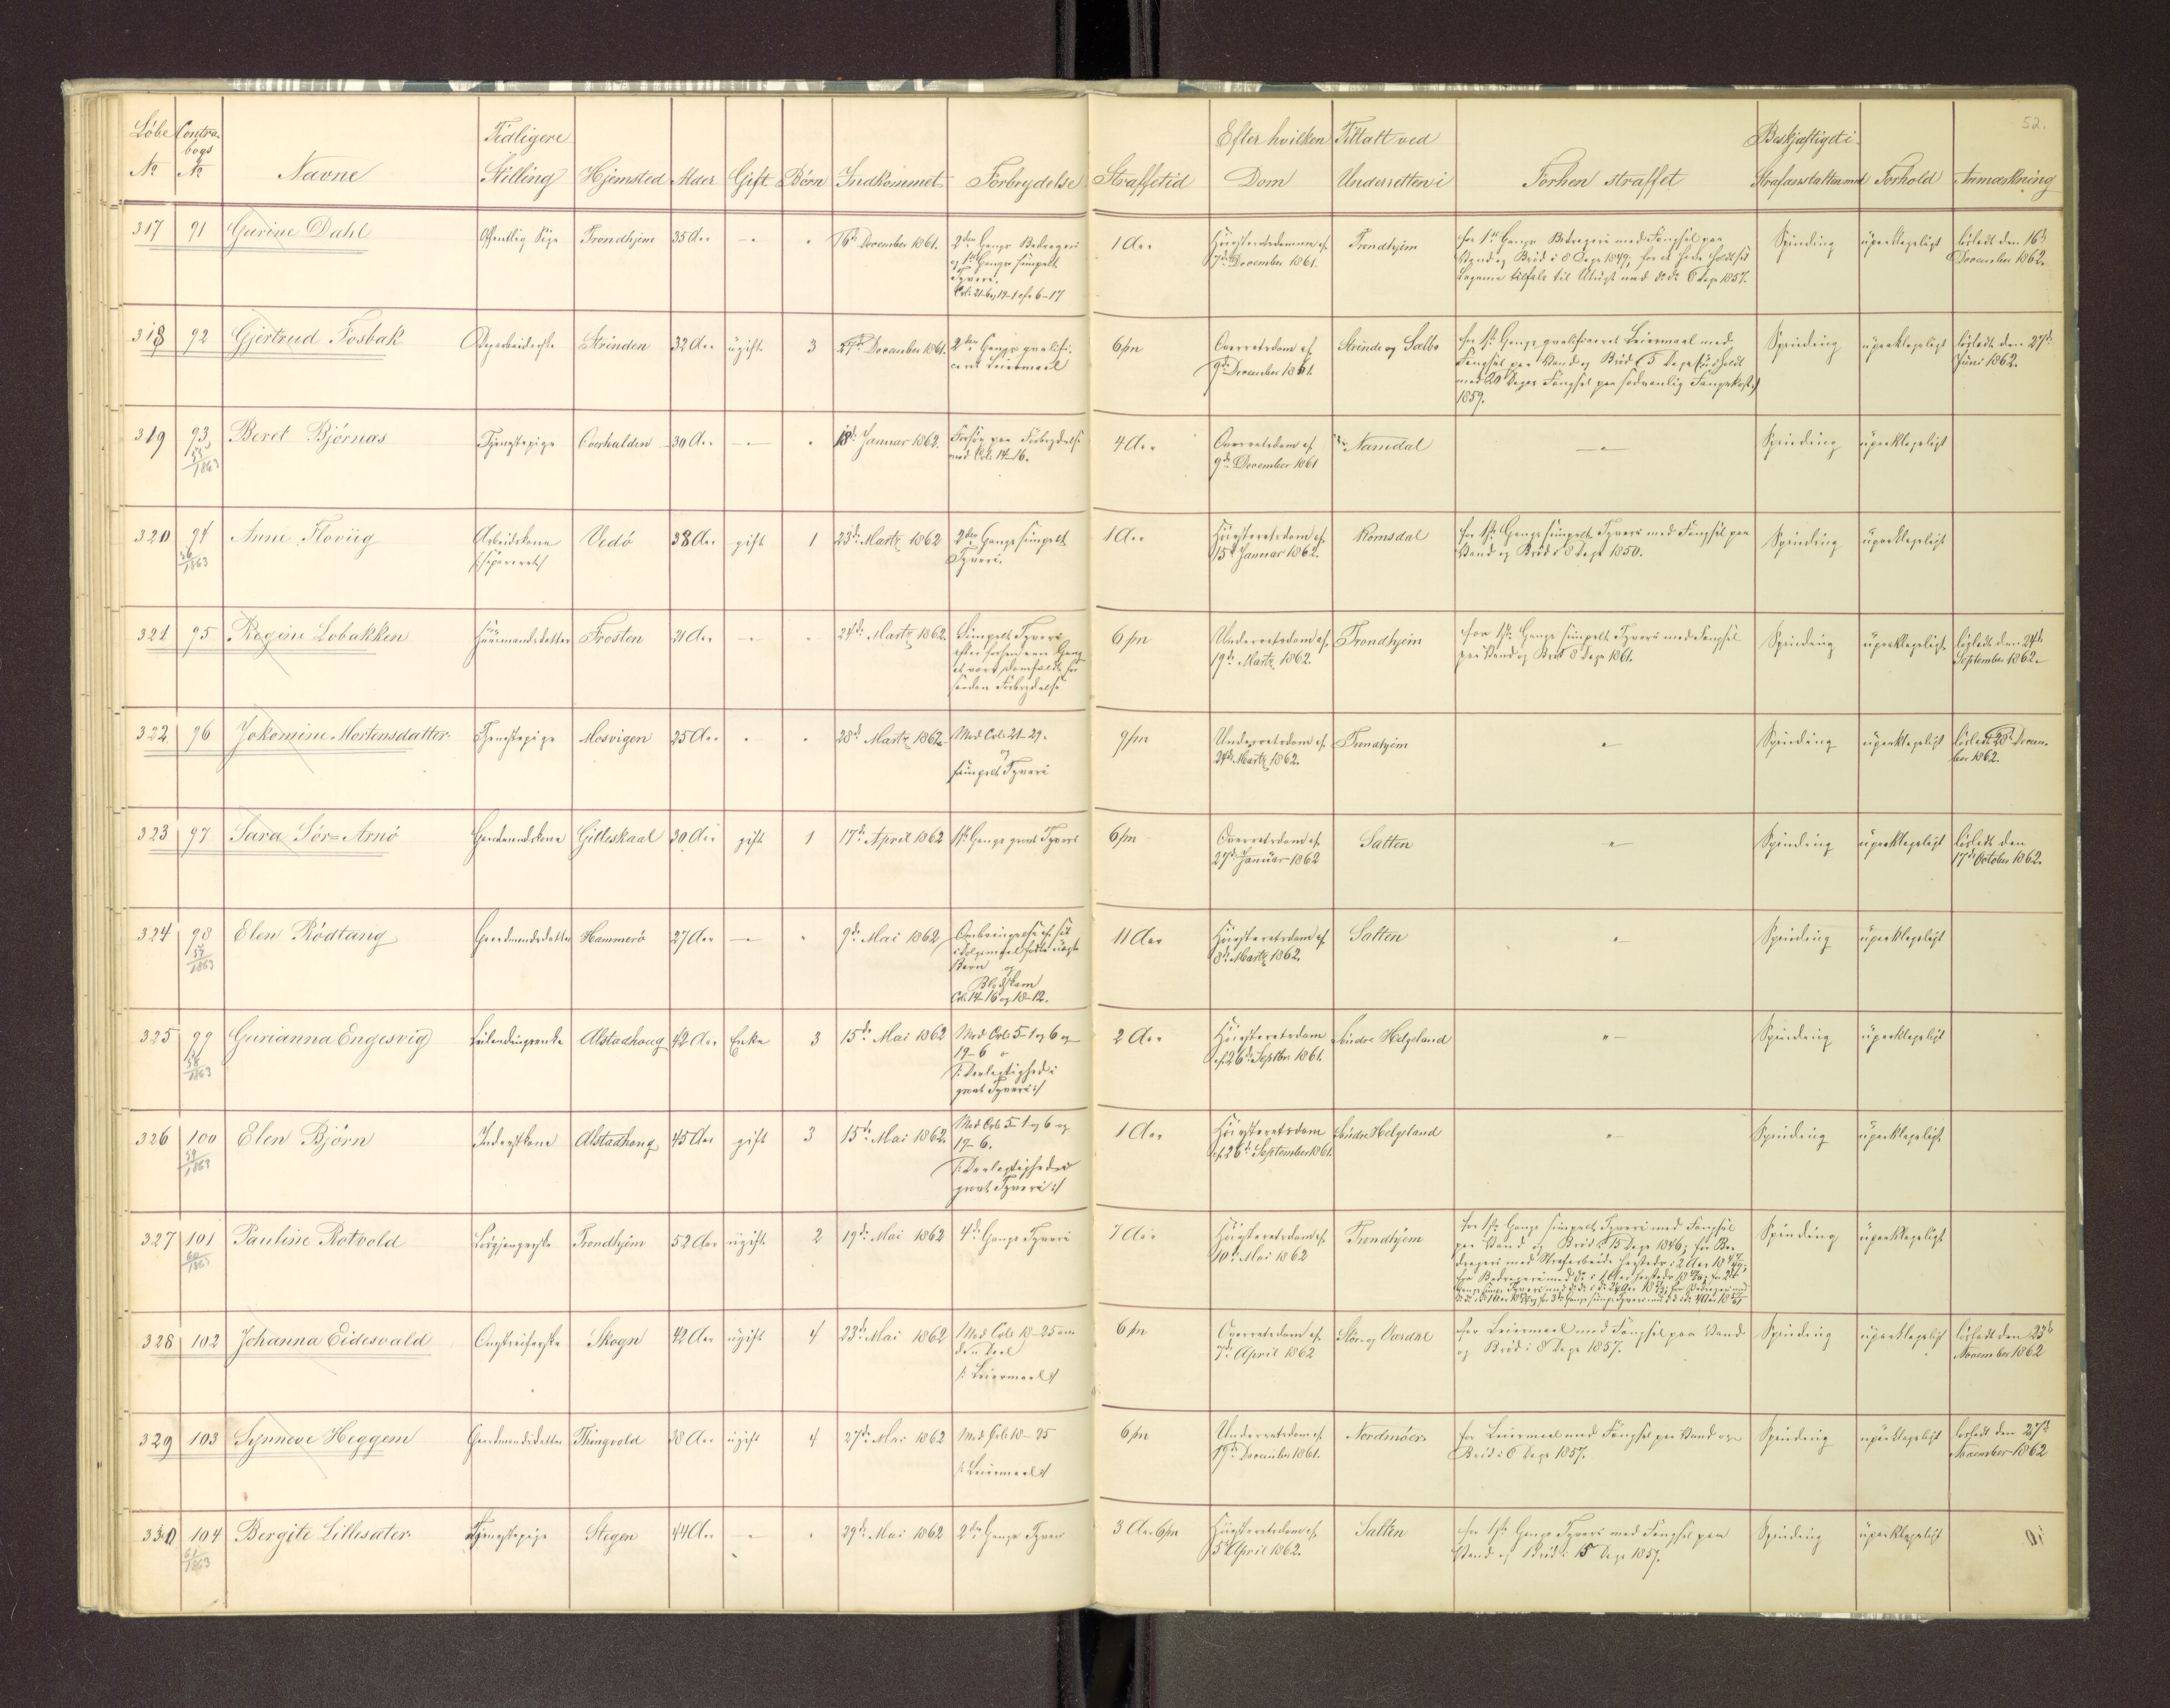 52.
Løbe Contra- Tidligere Efter hvilken Tiltalt ved Beskjæftiget i
bogs
No No Navne Stilling Hjemsted Alder Gift Børn Indkommet Forbrydelse Straffetid Dom Underretten i Forhen straffet Strafanstalten med Forhold Anmærkning
317 91 Gurine Dahl Offentlig Pige Trondhjem 35 Aar - " 16de December 1861. 2den Gangs Bedrageri 1 Aar Høiesteretsdom af Trondhjem for 1ste Gangs Bedrageri med Fængsel paa Spinding upaaklageligt løsladt den 16de
og 1ste Gangs simpelt 7de December 1861. Vand og Brød i 8 Dage 1849; December 1862.
Tyveri.
Crl. 21-6, 19-1 cfr 6-17
318 92 Gjertrud Fosbak Strinden 32 Aar ugift 3 27de December 1861. 2den Gangs qvalifi- 6 /m Overretsdom af Strinde og Sælbo for 1ste Gangs qvalificeret Leiermaal med Spinding upaaklageligt løsladt den 27de
ceret Leiermaal 9de December 1861. Fængsel paa Vand og Brød i 5 Dage Juni 1862.
med 20 Dages Fængsel paa sædvanlig Fangekost
1859.
319 93 Beret Bjørnas Tjenestepige Overhalden 30 Aar - " 18de Januar 1862. Forsøg paa Forbrydelse 4 Aar Overretsdom af Namdal - " - Spinding upaaklageligt
53/1863 mod Crl. 14-16. 9de December 1861
320 94 Anne Flovüg Arbeidskone Vedø 38 Aar gift 1 23de Martz 1862 2den Gangs simpelt 1 Aar Høiesteretsdom af Romsdal for 1ste Gangs simpelt Tyveri med Fængsel paa Spinding upaaklageligt
56/1863 /:separeret:/ Tyveri. 15de Januar 1862. Vand og Brød i 8 Dage 1850.
321 95 Regine Lobakken Huusmandsdatter Frosten 21 Aar - " 24de Martz 1862. Simpelt Tyveri 6 /m Underretsdom af Trondhjem for 1ste Gangs simpelt Tyveri med Fængsel Spinding upaaklageligt løsladt den 24de
efter forhen een Gang 19de Martz 1862. paa Vand og Brød 8 Dage 1861. September 1862.
at være domfældt for
saadan Forbrydelse
322 96 Jokomine Mortensdatter Tjenestepige Mosvigen 25 Aar " " 28de Martz 1862. Mod Crl. 21-29. 9 /m Underretsdom af Trondhjem " Spinding upaaklageligt løsladt 28de Decem-
og 24de Martz 1862. ber 1862.
simpelt Tyveri
323 97 Sara Sør=Arnø Gaardmandskone Gilleskaal 30 Aar gift 1 17de April 1862 1ste Gangs grovt Tyveri 6 /m Overretsdom af Salten " Spinding upaaklageligt løsladt den
27de Januar 1862 17de October 1862.
324 98 Elen Rødtang Gaardmandsdatter Hammerø 27 Aar - " 9de Mai 1862 Ombringelse af sit 11 Aar Høiesteretsdom af Salten " Spinding upaaklageligt
57/1863 i Dølgsmaal fødte uægte 8de Martz 1862.
Barn og
Blodskam
Crl. 14-16 og 18-12.
325 99 Gurianna Engesvig Leilendingsenke Alstadhoug 42 Aar Enke 3 15de Mai 1862 Mod Crl. 5-1 og 6 og 2 Aar Høiesteretsdom Søndre Helgeland " Spinding upaaklageligt
58/1863 19-6 af 26de Septbr. 1861.
/: Deelagtighed i
grovt Tyveri :/
326 100 Elen Bjørn Inderstkone Alstadhoug 45 Aar gift 3 15de Mai 1862. Mod Crl. 5-1 og 6 og 1 Aar Høiesteretsdom Søndre Helgeland " Spinding upaaklageligt
59/1863 19-6. af 26de September 1861.
/: Deelagtighed i
grovt Tyveri :/
327 101 Pauline Rotvold Løsgjængerske Trondhjem 52 Aar ugift 2 19de Mai 1862 4de Gangs Tyveri 7 Aar Høiesteretsdom af Trondhjem for 1ste Gangs simpelt Tyveri med Fængsel Spinding upaaklageligt
60/1863 10de Mai 1862 paa Vand og Brød i 15 Dage 1846; for Be-
drageri med Strafarbeide
328 102 Johanna Eidesvald Omstreiferske Skogn 42 Aar ugift 4 23de Mai 1862 Mod Crl. 18-25 6 /m Overretsdom af Stør og Værdal for Leiermaal med Fængsel paa Vand Spinding upaaklageligt løsladt den 23de
7de April 1862 og Brød i 8 Dage 1857. November 1862
/: Leiermaal :/
329 103 Synneve Heggem Gaardmandsdatter Thingvold 38 Aar ugift 4 27de Mai 1862 Mod Crl. 18-25 6 /m Underretsdom af Nordmøer for Leiermaal med Fængsel paa Vand og Spinding upaaklageligt løsladt den 27de
/: Leiermaal :/ 19de December 1861. Brød i 6 Dage 1857. November 1862
330 104 Bergite Lillesæter Tjenestepige Stegen 44 Aar - " 29de Mai 1862 2den Gangs Tyveri 3 Aar 6 /m Høiesteretsdom af Salten for 1ste Gangs Tyveri med Fængsel paa Spinding upaaklageligt
61/1863 5te April 1862. Vand og Brød i 15 Dage 1857.